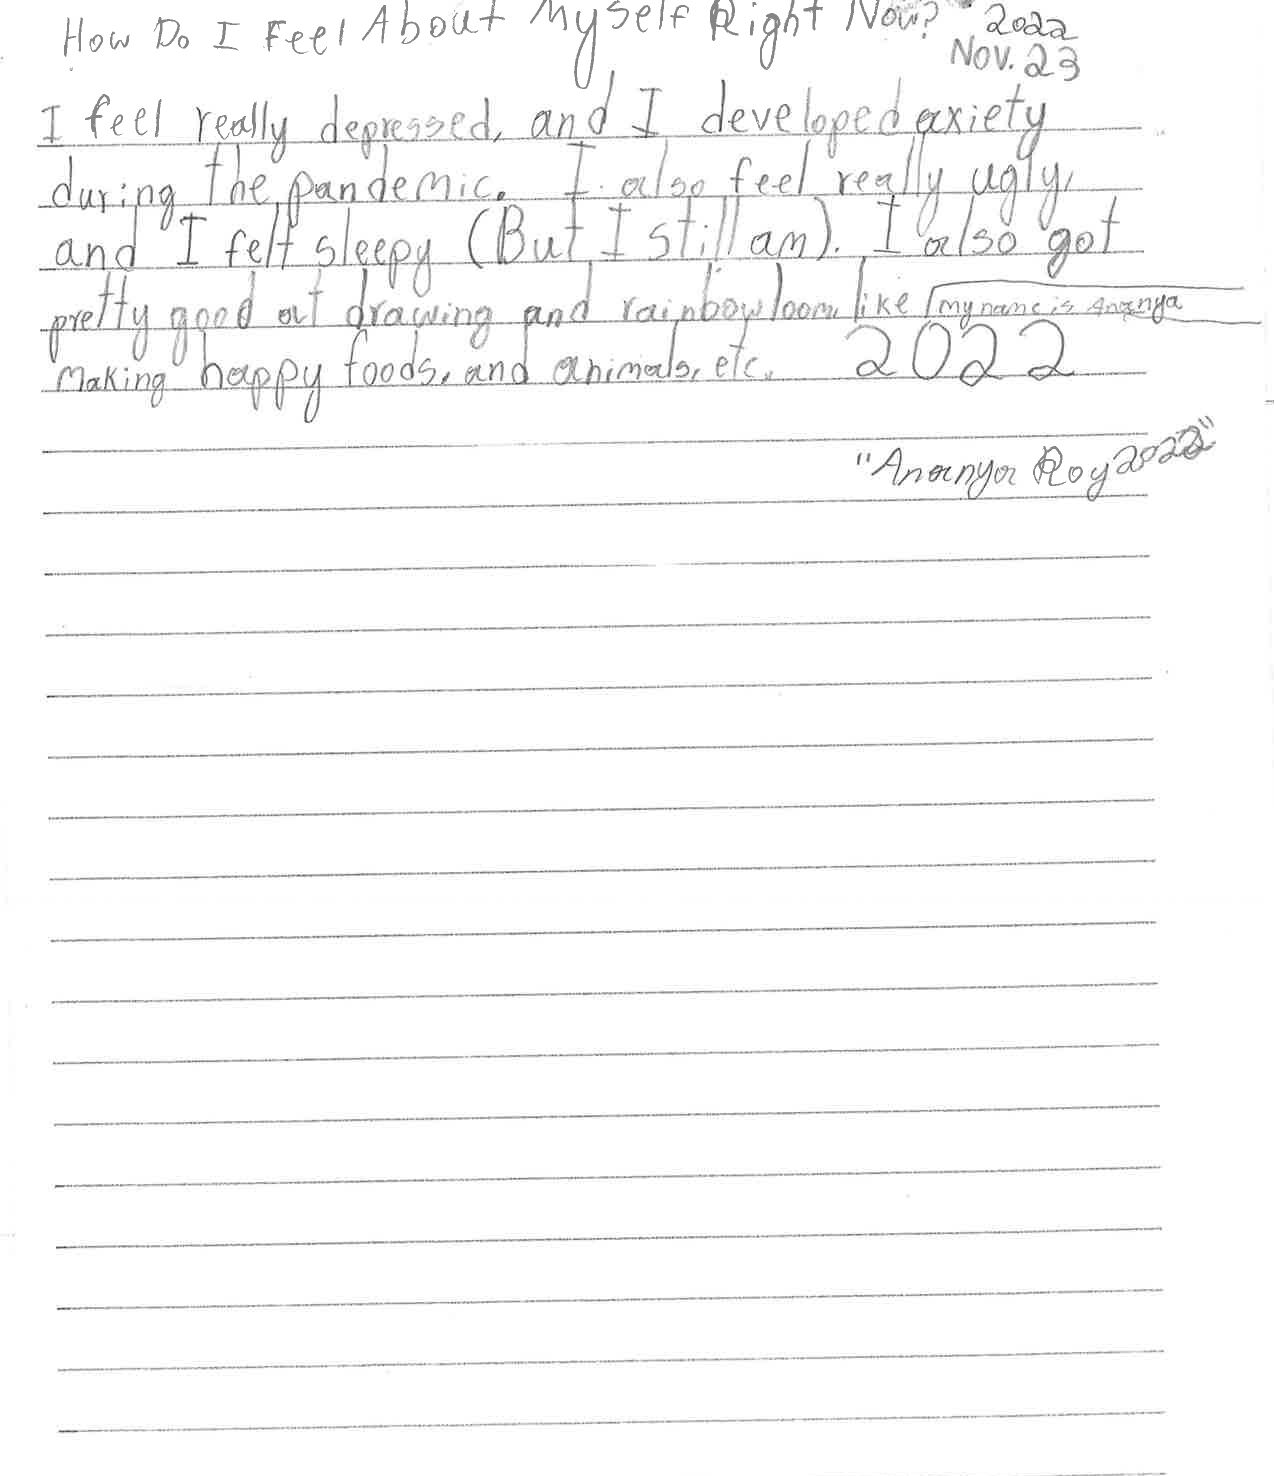 How Do I Feel About Myself Right Now? 2022
Nov. 23
I feel really depressed, and I developed axiety
during the pandemic. I also feel really ugly,
and I felt sleepy (But I still am). I also got
pretty good at drawing and rainbow loom, like my name is Ananya
Making happy foods, and animals, etc. 2022
"Ananya Roy 2022"